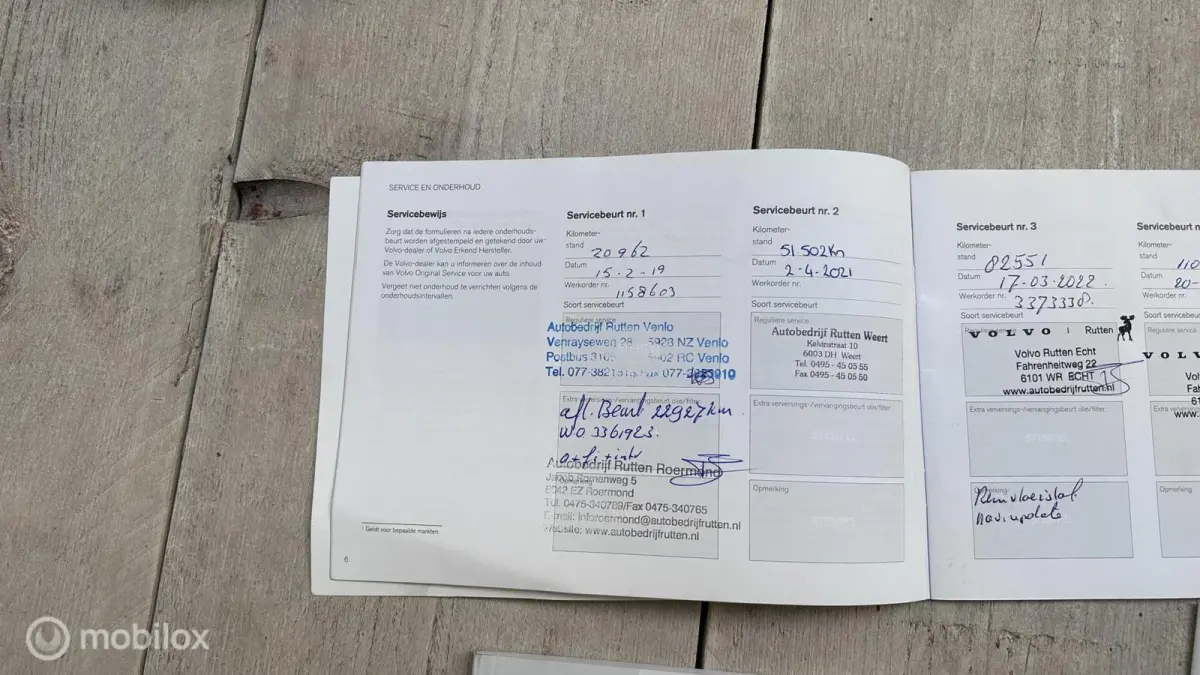 SERVICE EN ONDERHOUD
Servicebewijs
Zorg dat de formulieren na iedere onderhouds-
beurt worden afgestempeld en getekend door uw
Volvo-dealer of Volvo Erkend Hersteller.
De Volvo-dealer kan u informeren over de inhoud
van Volvo Original Service voor uw auto.
Vergeet niet onderhoud te verrichten volgens de
onderhoudsintervallen.
1 Geldt voor bepaalde markten.
6
Servicebeurt nr. 1
Kilometer-
stand 20962
Datum 15-2-19
Werkorder nr. 1158603
Soort servicebeurt
Reguliere service
Autobedrijf Rutten Venlo
Venrayseweg 28 5928 NZ Venlo
Postbus 5902 RC Venlo
Tel. 077-38215 Fax 077-
Extra verversings-/vervangingsbeurt olie/filter
afl. Beurt 22927km.
WO 3361923.
Autobedrijf Rutten Roermond
Jacob Romenweg 5
6042 EZ Roermond
Tel. 0475-340789/Fax 0475-340765
E-mail: inforoermond@autobedrijfrutten.nl
Website: www.autobedrijfrutten.nl
Servicebeurt nr. 2
Kilometer-
stand 51502km
Datum 2-4-2021
Werkorder nr.
Soort servicebeurt
Reguliere service
Autobedrijf Rutten Weert
Kelvinstraat 10
6003 DH Weert
Tel. 0495 - 45 05 55
Fax 0495 - 45 05 50
Extra verversings-/vervangingsbeurt olie/filter
STEMPEL
Opmerking
Servicebeurt nr. 3
Kilometer-
stand 82551
Datum 17-03-2022.
Werkorder nr. 3373330.
Soort servicebeurt
VOLVO | Rutten
Volvo Rutten Echt
Fahrenheitweg 22
6101 WR ECHT
www.autobedrijfrutten.nl
Extra verversings-/vervangingsbeurt olie/filter
STEMPEL
Opmerking
Remvloeistof
navi update
Servicebeurt n
Kilometer-
stand 110
Datum 20-
Werkorder nr.
Soort servicebeurt
Reguliere service
VOLV
Vol
Fa
61
www.
Extra verversings-
Opmerking
mobilox